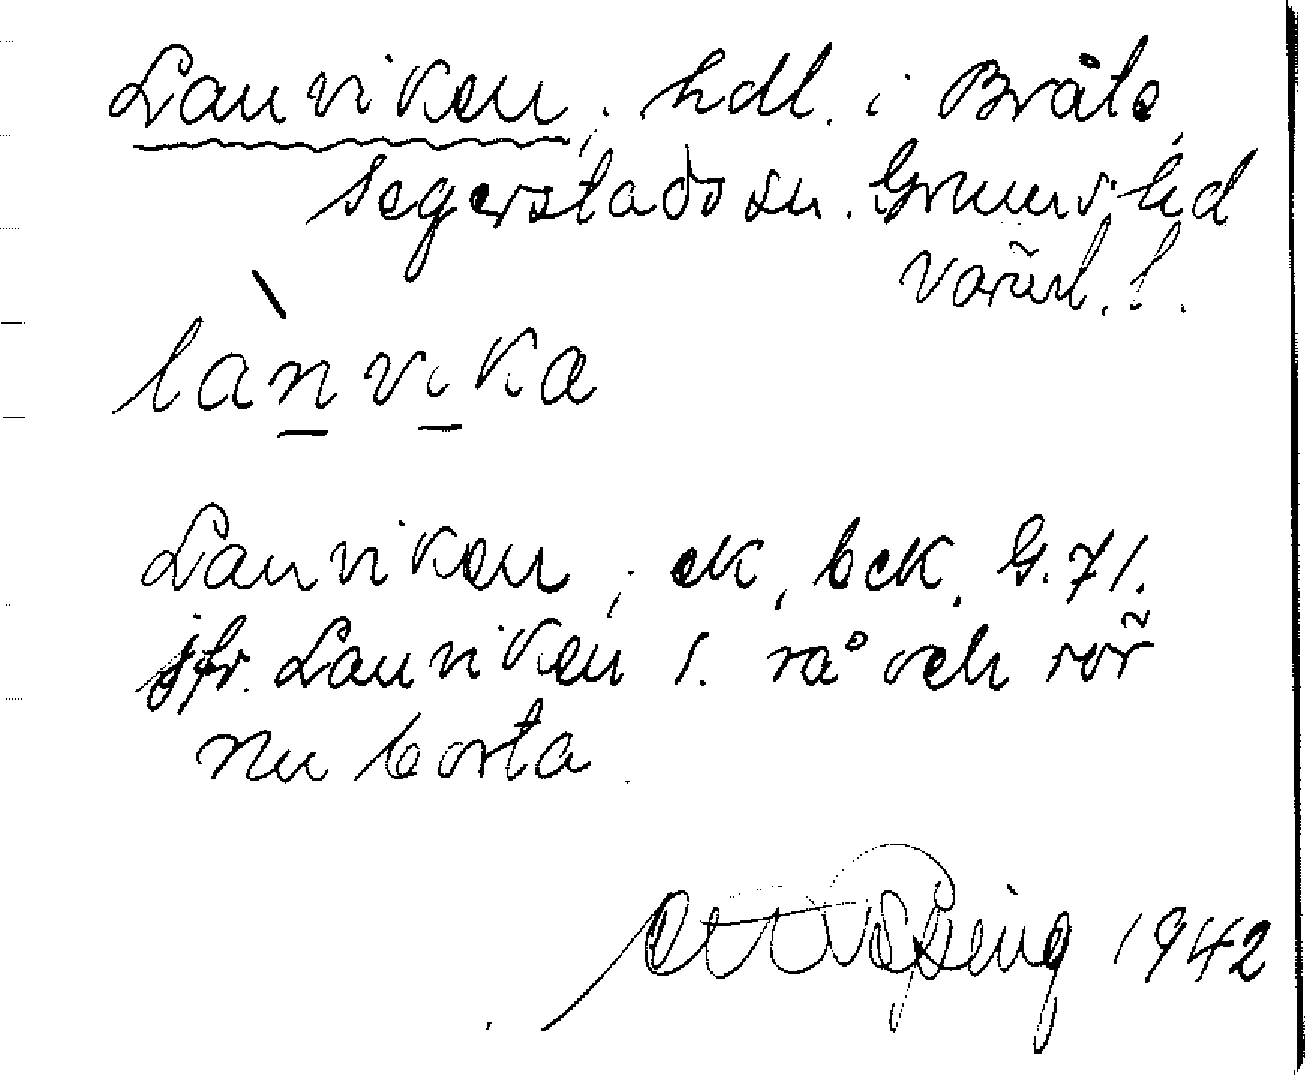 Lanviken, hdl. i Bråte,
Segerstads sn. Grums hd
Värml. l.
lànvika
Lanviken, ek, bek. G. 71.
jfr. Lanviken 1. rå och rör
nu borta
1942